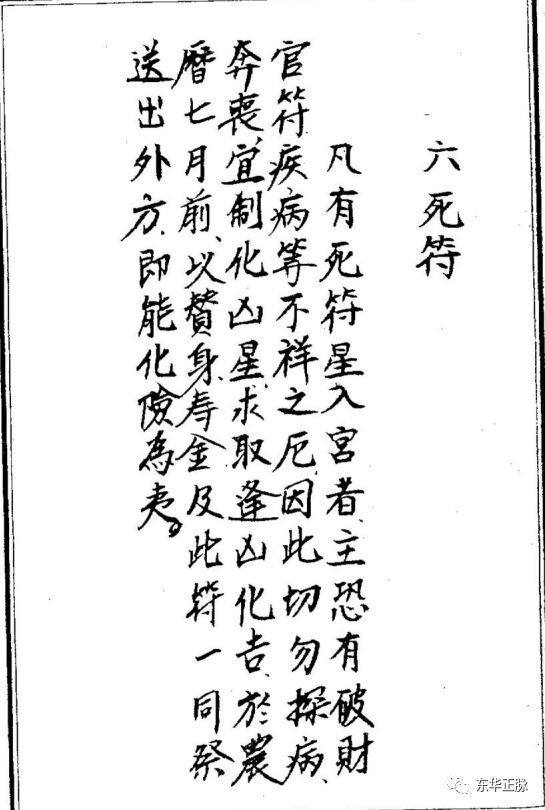 六死符
凡有死符星入宮者、主恐有破財
官符疾病等不祥之厄、因此切勿探病、
奔喪、宜制化凶星、求取逢凶化吉、於農
曆七月前、以贊身、寿金及此符一同祭
送出外方、即能化險為夷。
东华正脉